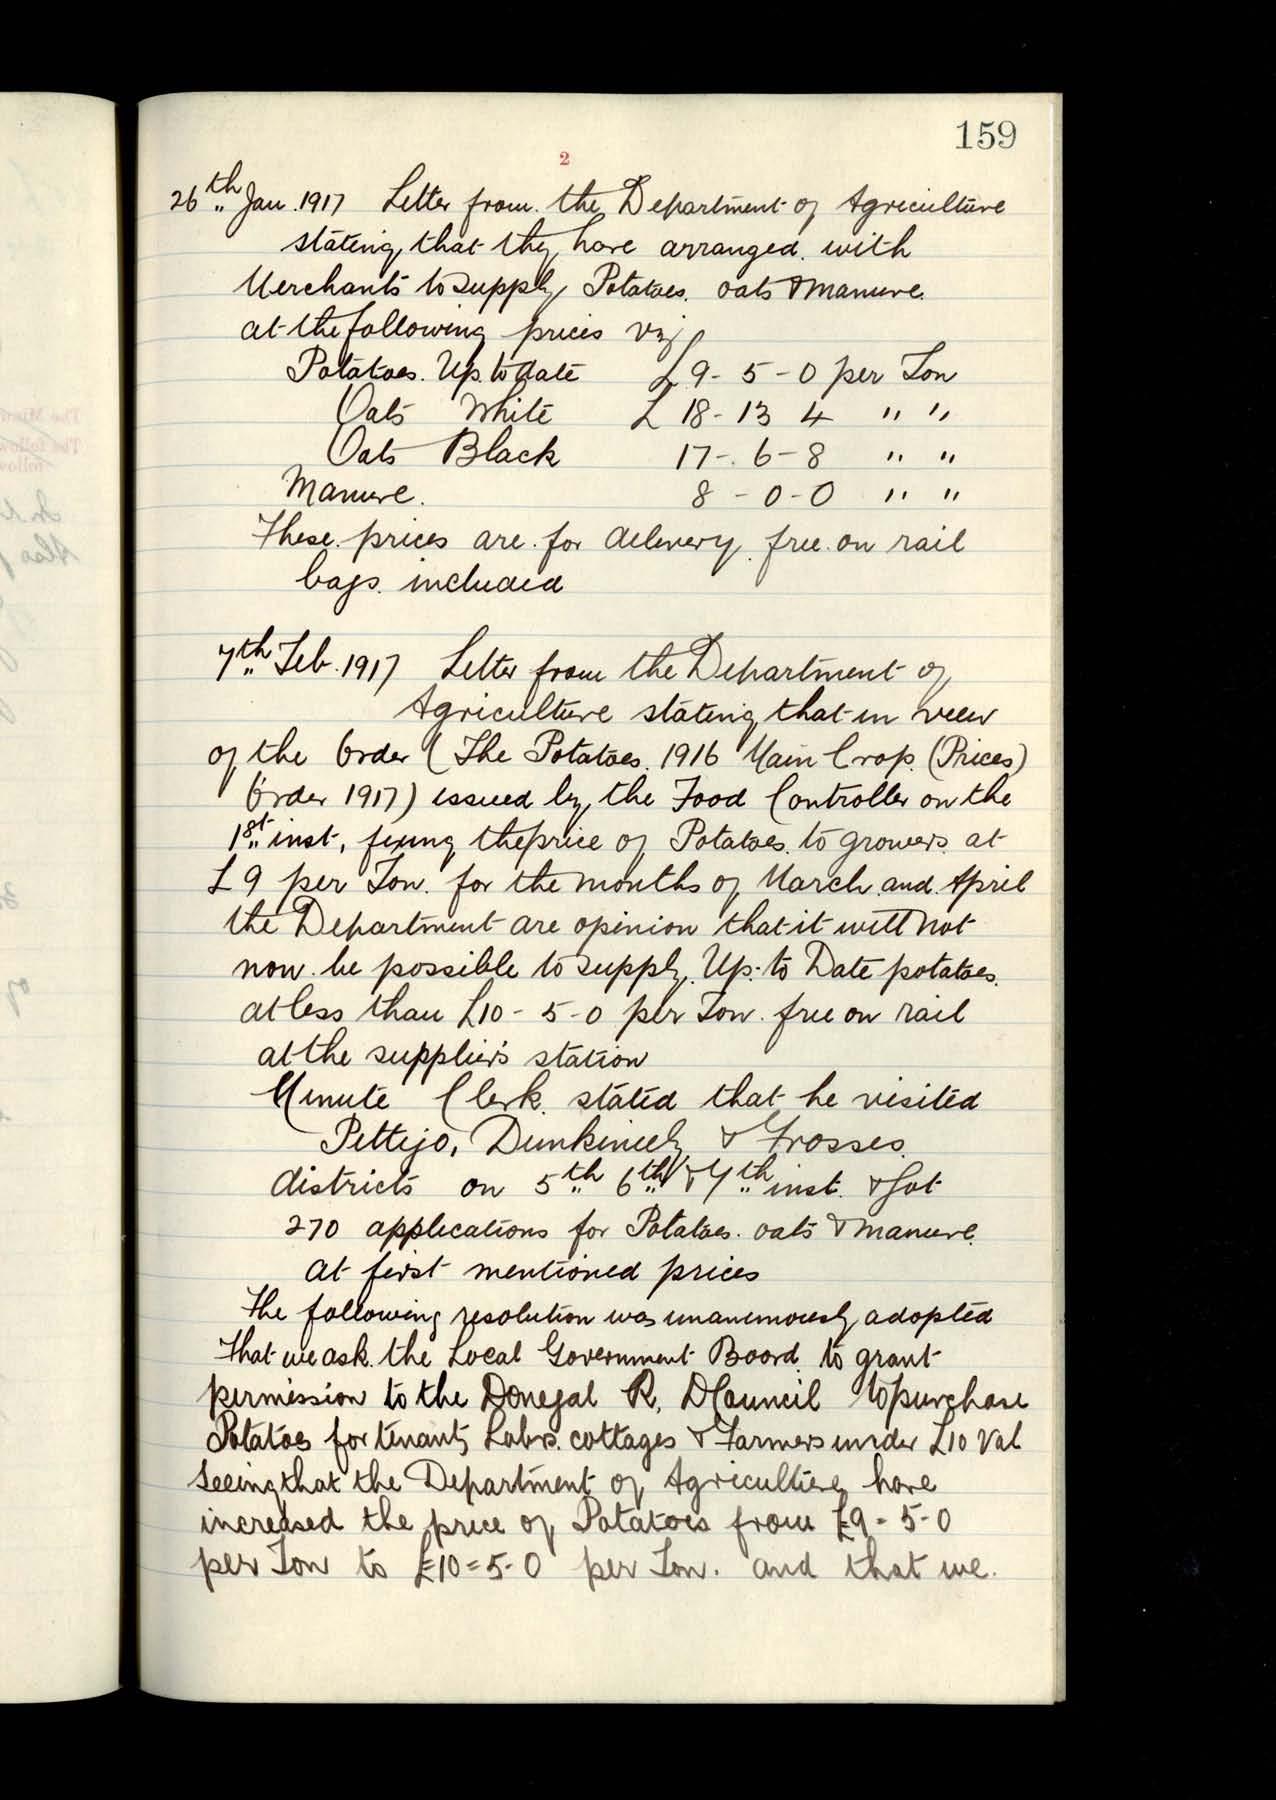 159
2
26th Jan. 1917 Letter from the Department of Agriculture
stating that they have arranged with
Merchants to supply Potatoes. oats & manure.
at the following prices viz
Potatoes. Up to date £9 - 5 - 0 per Ton
Oats White £ 18 - 13 4 " "
Oats Black 17 - 6 - 8 " "
Manure. 8 - 0 - 0 " "
These prices are for delivery free on rail
bags included
7th Feb. 1917 Letter from the Department of
Agriculture stating that in view
of the Order (The Potatoes. 1916 Main Crop. (Prices)
Order 1917) issued by the Food Controller on the
1st inst, fixing the price of Potatoes to growers at
£9 per Ton. for the months of March and April
the Department are opinion that it will not
now be possible to supply Up-to Date potatoes.
at less than £10 - 5 - 0 per Ton free on rail
at the supplier's station
Minute Clerk stated that he visited
Pettijo, Dunkineely & Frosses.
districts on 5th 6th & 7th inst. & got
270 applications for Potatoes. oats & manure.
at first mentioned prices
The following resolution was unanimously adopted
That we ask the Local Government Board to grant
permission to the Donegal R. D Council to purchase
Potatoes for tenants Labrs. cottages & Farmers under £10 Val
Seeing that the Department of Agriculture have
increased the price of Potatoes from £9 - 5 - 0
per Ton to £10 = 5 - 0 per Ton. and that we